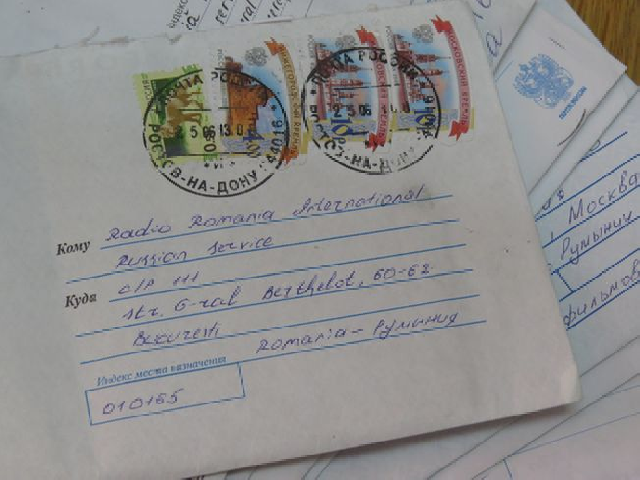 ПОЧТА РОССИИ
РОСТОВ-НА-ДОНУ 344016
ПОЧТА РОССИИ
РОСТОВ-НА-ДОНУ 344016
МОСКОВСКИЙ КРЕМЛЬ
Кому Radio Romania International
Russian service
Куда O/P 111
str. G-ral Berthelot, 60-62
Bucuresti
Romania - Румыния
Индекс места назначения
010165
Москва
Румыния